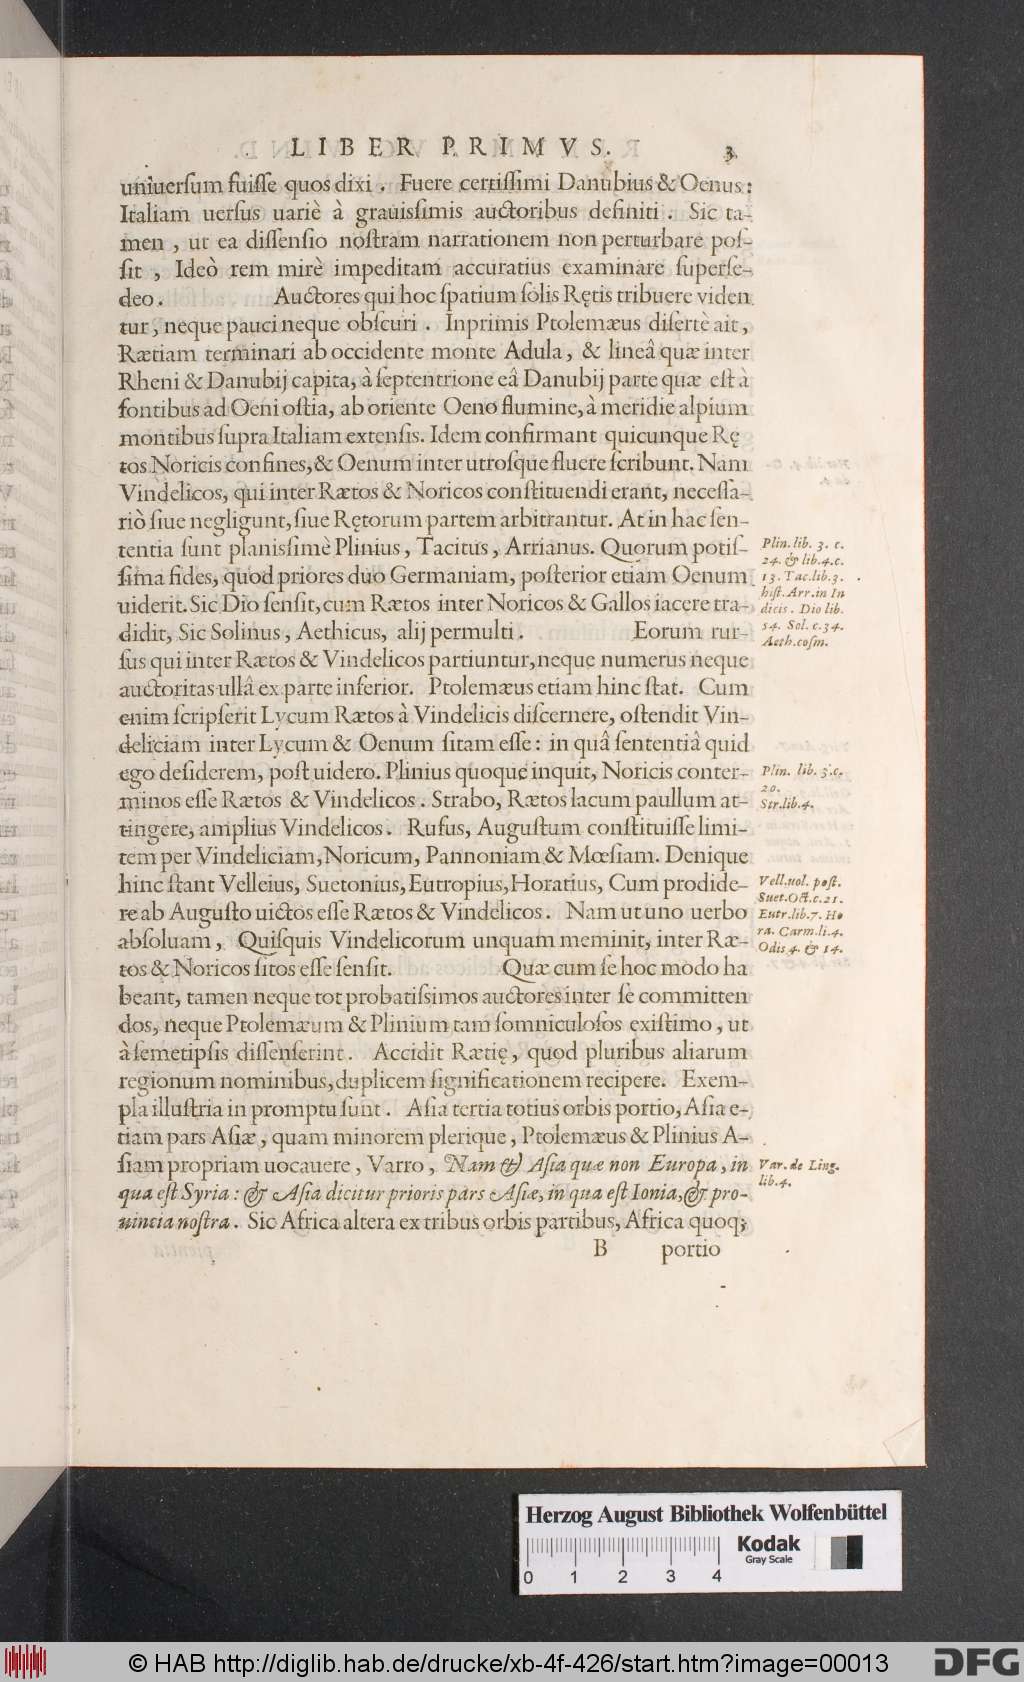 LIBER PRIMVS. 3
uniuerſum fuiſſe quos dixi. Fuere certiſſimi Danubius & Oenus:
Italiam uerſus uariè à grauiſsimis auctoribus definiti. Sic ta-
men, ut ea diſſenſio noſtram narrationem non perturbare poſ-
ſit, Ideò rem mirè impeditam accuratius examinare ſuperſe-
deo. Auctores qui hoc ſpatium ſolis Rętis tribuere viden
tur, neque pauci neque obſcuri. Inprimis Ptolemæus diſertè ait,
Rætiam terminari ab occidente monte Adula, & lineâ quæ inter
Rheni & Danubij capita, à ſeptentrione eâ Danubij parte quæ eſt à
fontibus ad Oeni oſtia, ab oriente Oeno flumine, à meridie alpium
montibus ſupra Italiam extenſis. Idem confirmant quicunque Rę
tos Noricis confines, & Oenum inter utroſque fluere ſcribunt. Nam
Vindelicos, qui inter Rætos & Noricos conſtituendi erant, neceſſa-
riò ſiue negligunt, ſiue Rętorum partem arbitrantur. At in hac ſen-
tentia ſunt planiſsimè Plinius, Tacitus, Arrianus. Quorum potiſ-
ſima fides, quod priores duo Germaniam, poſterior etiam Oenum
uiderit. Sic Dio ſenſit, cum Rætos inter Noricos & Gallos iacere tra-
didit, Sic Solinus, Aethicus, alij permulti. Eorum rur-
ſus qui inter Rætos & Vindelicos partiuntur, neque numerus neque
auctoritas ullâ ex parte inferior. Ptolemæus etiam hinc ſtat. Cum
enim ſcripſerit Lycum Rætos à Vindelicis diſcernere, oſtendit Vin-
deliciam inter Lycum & Oenum ſitam eſſe: in quâ ſententiâ quid
ego deſiderem, poſt uidero. Plinius quoque inquit, Noricis conter-
minos eſſe Rætos & Vindelicos. Strabo, Rætos lacum paullum at-
tingere, amplius Vindelicos. Rufus, Auguſtum conſtituiſſe limi-
tem per Vindeliciam, Noricum, Pannoniam & Mœſiam. Denique
hinc ſtant Velleius, Suetonius, Eutropius, Horatius, Cum prodide-
re ab Auguſto uictos eſſe Rætos & Vindelicos. Nam ut uno uerbo
abſoluam, Quiſquis Vindelicorum unquam meminit, inter Ræ-
tos & Noricos ſitos eſſe ſenſit. Quæ cum ſe hoc modo ha
beant, tamen neque tot probatiſsimos auctores inter ſe committen
dos, neque Ptolemæum & Plinium tam ſomniculoſos exiſtimo, ut
à ſemetipſis diſſenſerint. Accidit Rætię, quod pluribus aliarum
regionum nominibus, duplicem ſignificationem recipere. Exem-
pla illuſtria in promptu ſunt. Aſia tertia totius orbis portio, Aſia e-
tiam pars Aſiæ, quam minorem plerique, Ptolemæus & Plinius A-
ſiam propriam uocauere, Varro, Nam & Aſia quæ non Europa, in
qua eſt Syria: & Aſia dicitur prioris pars Aſiæ, in qua eſt Ionia, & pro-
uincia noſtra. Sic Africa altera ex tribus orbis partibus, Africa quoq;
B portio
Plin. lib. 3. c.
24. & lib. 4. c.
13. Tac. lib. 3.
hiſt. Arr. in In
dicis. Dio lib.
54. Sol. c. 34.
Aeth. coſm.
Plin. lib. 3. c.
20.
Str. lib. 4.
Vell. uol. poſt.
Suet. Oct. c. 21.
Eutr. lib. 7. Ho
ra. Carm. li. 4.
Odis 4. & 14.
Var. de Ling.
lib. 4.
Herzog August Bibliothek Wolfenbüttel
0 1 2 3 4
Kodak
Gray Scale
© HAB http://diglib.hab.de/drucke/xb-4f-426/start.htm?image=00013
DFG